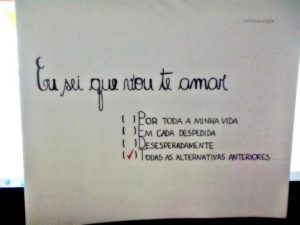 Eu sei que vou te amar
( ) Por toda a minha vida
( ) Em cada despedida
( ) Desesperadamente
(✓) Todas as alternativas anteriores